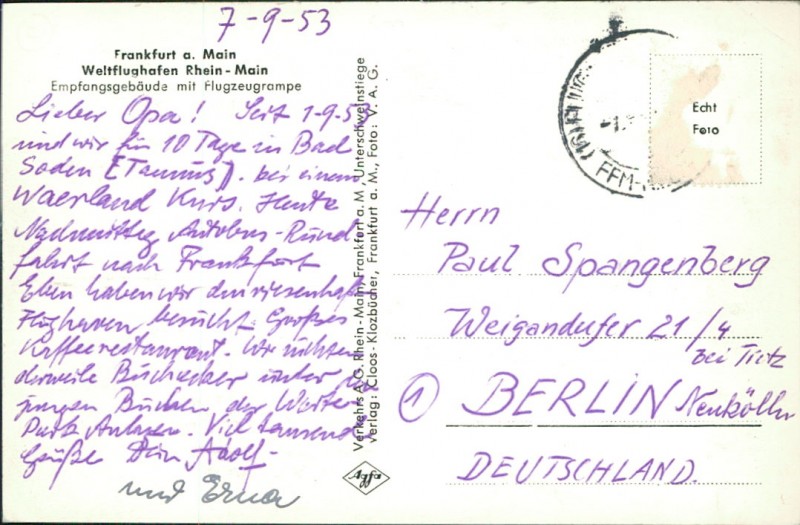 7-9-53
Frankfurt a. Main
Weltflughafen Rhein-Main
Empfangsgebäude mit Flugzeugrampe
Lieber Opa! Seit 1-9-53
sind wir für 10 Tage in Bad
Soden (Taunus). bei einem
WAERLAND Kurs. Heute
Nachmittag Autobus-Rund
fahrt nach Frankfort
Eben haben wir den riesenhaften
Flughaven besucht. Großes
Kaffeerestaurant. Wir
derweile Bucheckern unter
jungen Buchen der
Park Anlagen. Viel tausend
Grüße Dein Adolf-
und Erna
Verkehrs A.G. Rhein-Main Frankfurt a. M., Unterschweinstiege
Verlag: Cloos-Klozbücher, Frankfurt a. M., Foto: V. A. G.
Agfa
FFM
Echt
Foto
Herrn
Paul Spangenberg
Weigandufer 21/4
bei Tietz
(1) BERLIN Neukölln
DEUTSCHLAND.